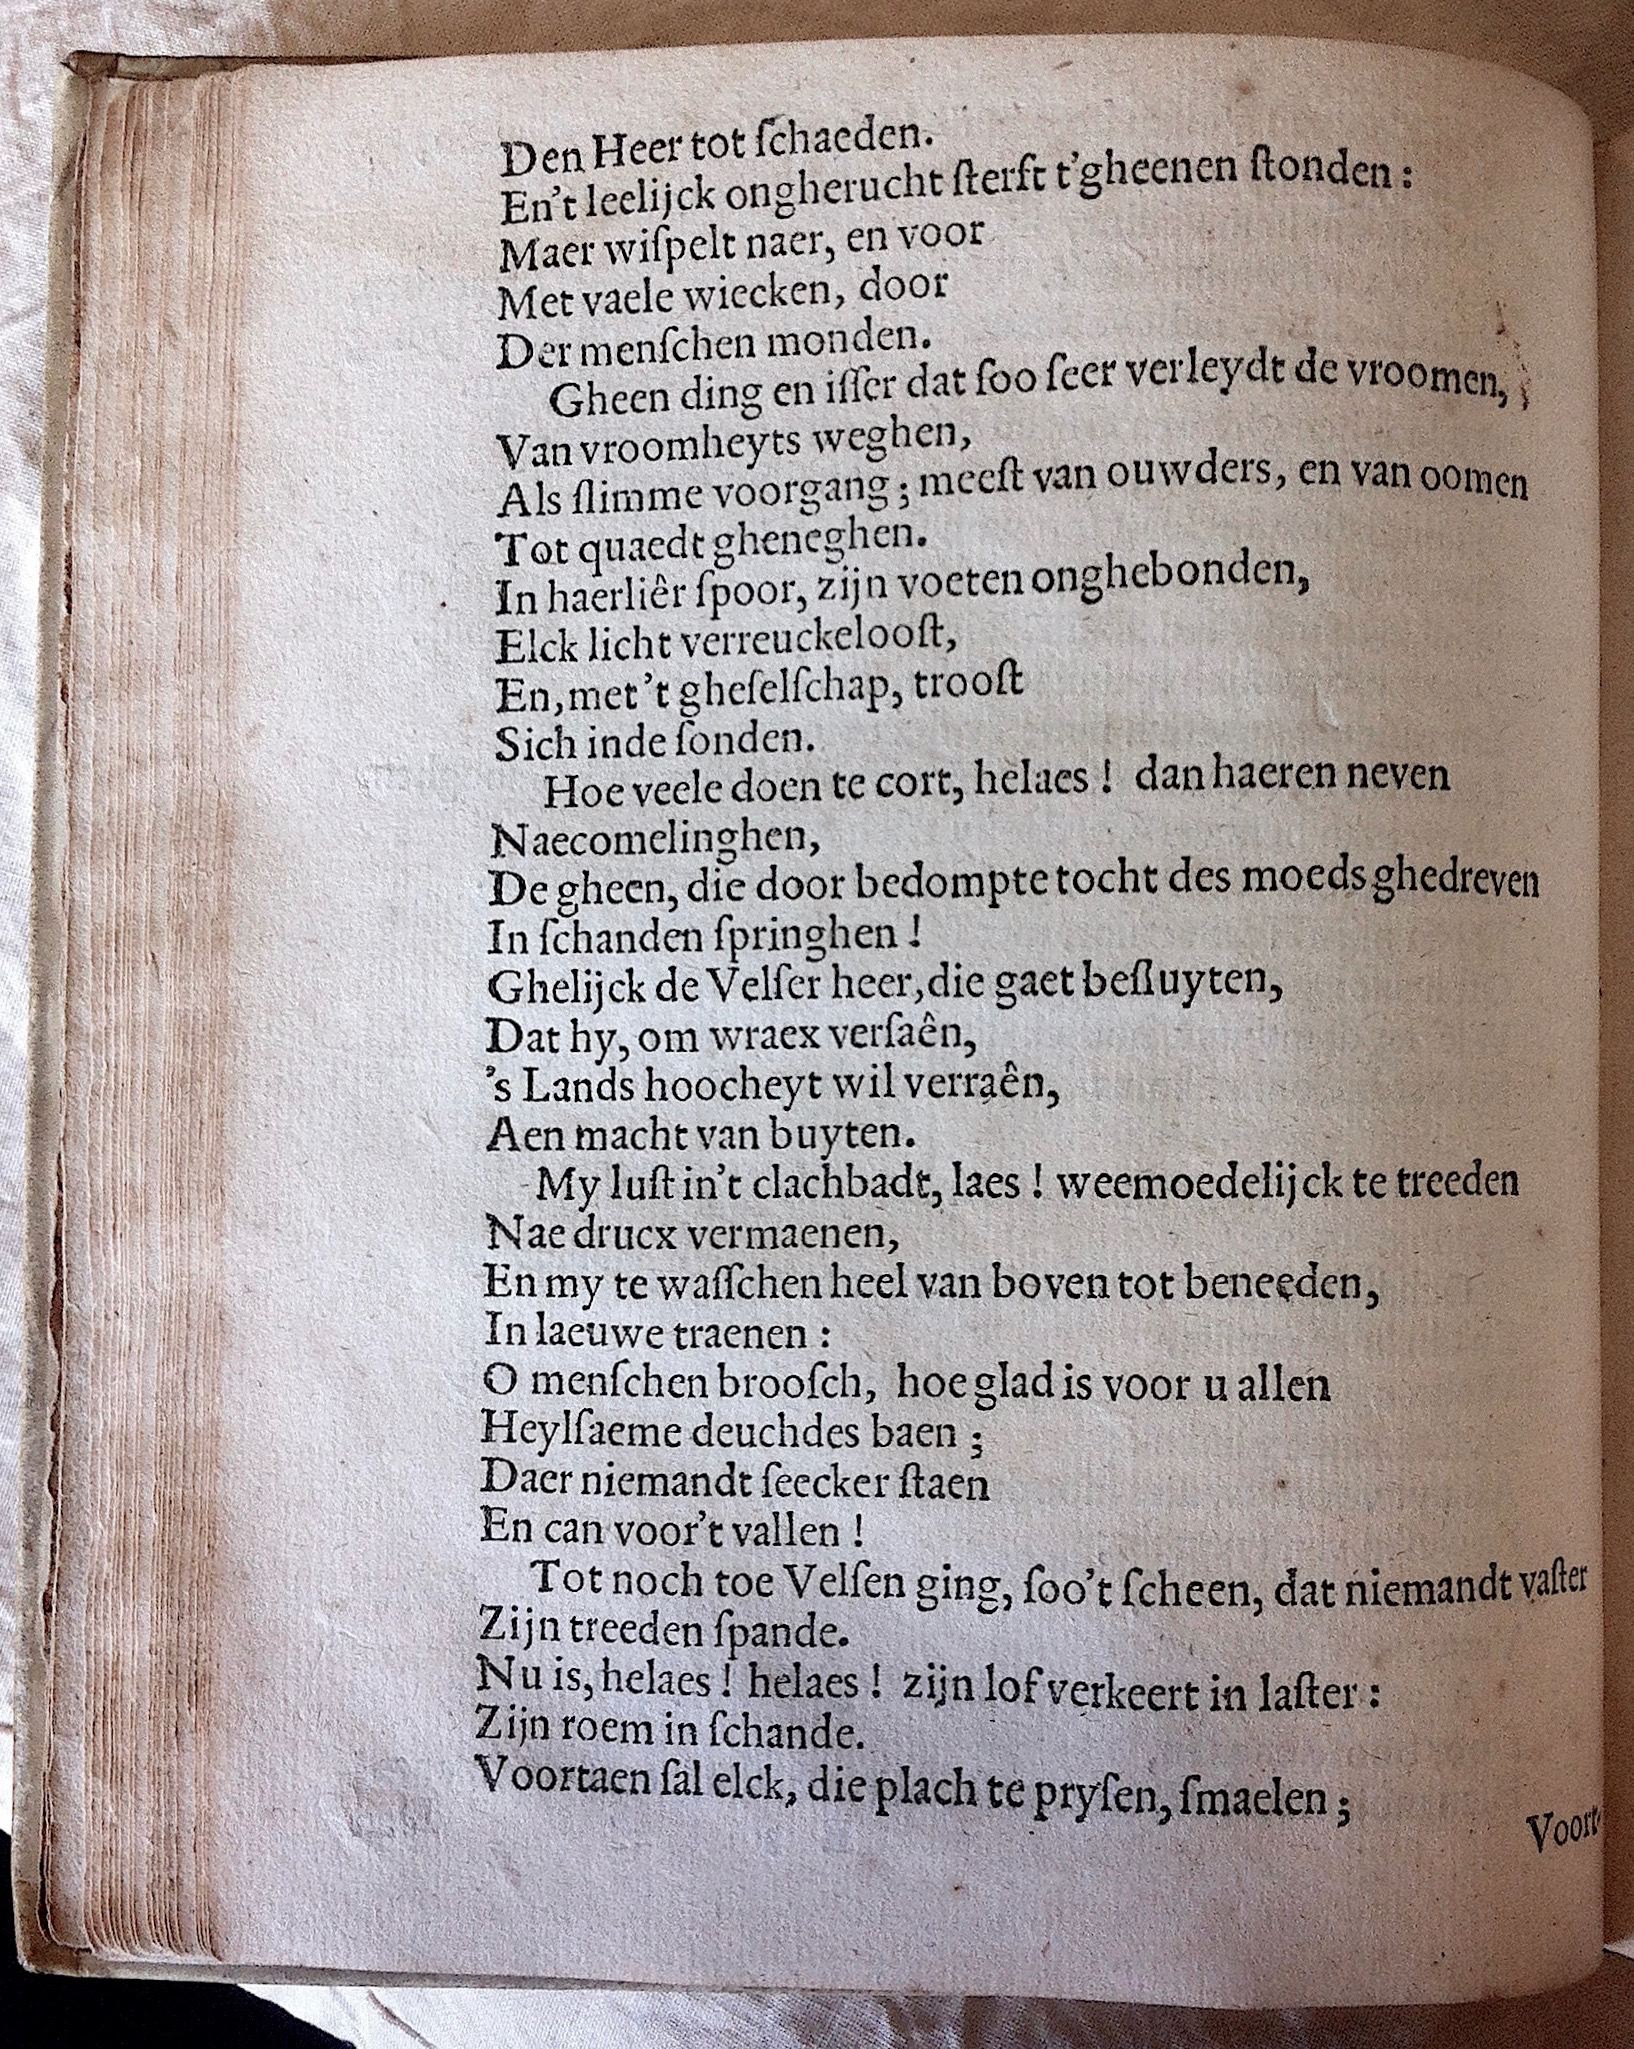 Den Heer tot ſchaeden.
En't leelijck ongherucht ſterft t'gheenen ſtonden :
Maer wiſpelt naer, en voor
Met vaele wiecken, door
Der menſchen monden.
Gheen ding en iſſer dat ſoo ſeer verleydt de vroomen,
Van vroomheyts weghen,
Als ſlimme voorgang ; meeſt van ouwders, en van oomen
Tot quaedt gheneghen.
In haerliêr ſpoor, zijn voeten onghebonden,
Elck licht verreuckelooſt,
En, met 't gheſelſchap, trooſt
Sich inde ſonden.
Hoe veele doen te cort, helaes ! dan haeren neven
Naecomelinghen,
De gheen, die door bedompte tocht des moeds ghedreven
In ſchanden ſpringhen !
Ghelijck de Velſer heer, die gaet beſluyten,
Dat hy, om wraex verſaên,
's Lands hoocheyt wil verraên,
Aen macht van buyten.
My luſt in't clachbadt, laes ! weemoedelijck te treeden
Nae drucx vermaenen,
En my te waſſchen heel van boven tot beneeden,
In laeuwe traenen :
O menſchen brooſch, hoe glad is voor u allen
Heylſaeme deuchdes baen ;
Daer niemandt ſeecker ſtaen
En can voor't vallen !
Tot noch toe Velſen ging, ſoo't ſcheen, dat niemandt vaſter
Zijn treeden ſpande.
Nu is, helaes ! helaes ! zijn lof verkeert in laſter :
Zijn roem in ſchande.
Voortaen ſal elck, die plach te pryſen, ſmaelen ;
Voort-